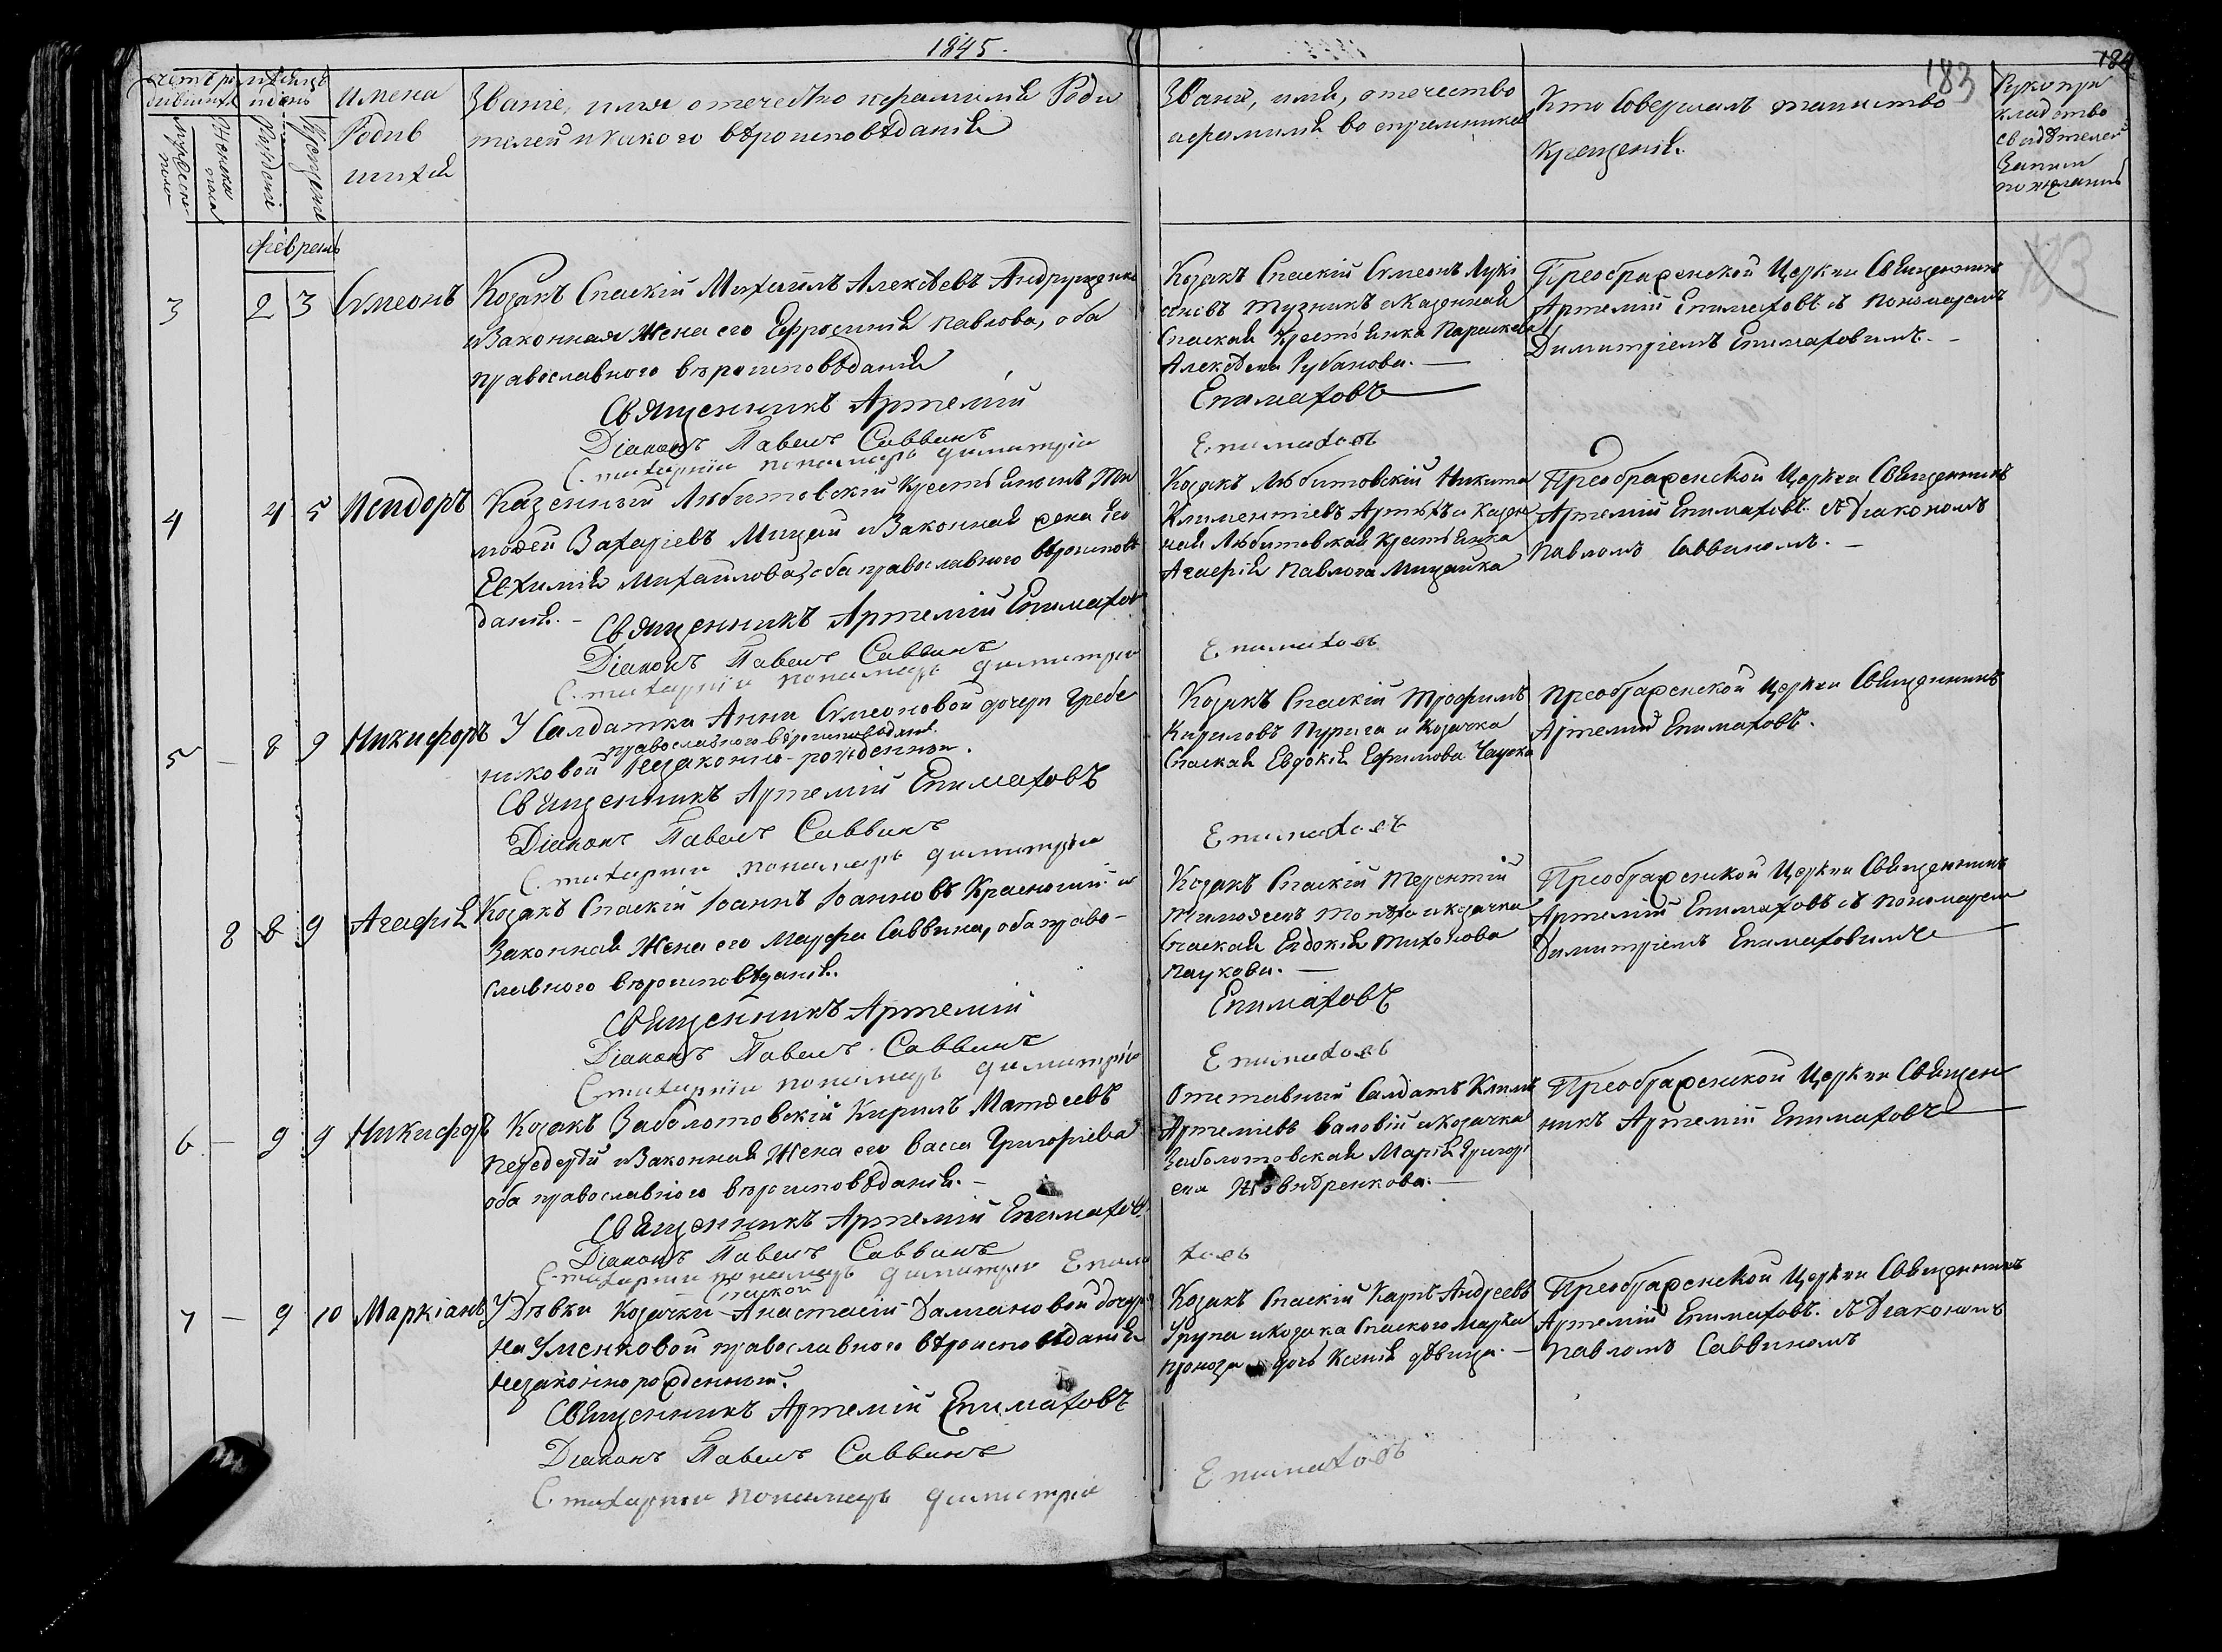 1845.
183
184
счетъ ро мѣсяцъ
дившихся и день
Имена
Родив
шихся
Званіе, имя отечество и фамилія Роди
телей и какого вѣроисповѣданія
Званіе, имя, отечество
и фамилія воспріемниковъ
Кто совершалъ таинство
Крещенія.
Рукопри
кладство
свидѣтелей
Записи
по желанію
мужеска
пола
Женска
пола
Рожденія
Крещенія
февраль
3 2 3 Симеонъ
Козакъ Спаскій Михаилъ Алексѣевъ Андрущенко
и Законная Жена его Ефросинія Павлова, оба
православного вѣроисповѣданія
Священникъ Артемій
Діаконъ Павелъ Саввинъ
Стихарный пономарь Димитрій
Козакъ Спаскій Симеонъ Лукі
яновъ Тузникъ и Казенная
Спаская Крестьянка Параскева
Алексѣева Рубанова.
Епимаховъ
Епимаховъ
Преображенской Церкви Священникъ
Артемій Епимаховъ съ пономаремъ
Димитріемъ Епимаховымъ.
4 4 5 Исидоръ
Казенный Любитовскій Крестьянинъ Ти
мофей Захаріевъ Мицай и Законная жена его
Евхимія Михайлова, оба православного вѣроисповѣ
данія. Священникъ Артемій Епимаховъ
Діаконъ Павелъ Саввинъ
Стихарный пономарь Димитрій
Козакъ Любитовскій Никита
Климентіевъ и Казен
ная Любитовская Крестьянка
Агафія Павлова Мицайка
Епимаховъ
Преображенской Церкви Священникъ
Артемій Епимаховъ съ Діакономъ
Павломъ Саввиномъ.
5 — 8 9 Никифоръ
У Салдатки Анны Симеоновой дочери Гребе
православного вѣроисповѣданія
никовой незаконно-рожденный.
Священникъ Артемій Епимаховъ
Діаконъ Павелъ Саввинъ
Стихарный пономарь Димитрій
Козакъ Спаскій Трофимъ
Кириловъ Пурига и Козачка
Спаская Евдокія Ефимова
Епимаховъ
Преображенской Церкви Священникъ
Артемій Епимаховъ.
8 8 9 Агафія
Козакъ Спаскій Іоаннъ Іоанновъ и
Законная Жена его Марфа Саввина, оба право-
славного вѣроисповѣданія.
Священникъ Артемій
Діаконъ Павелъ Саввинъ
Стихарный пономарь Димитрій
Козакъ Спаскій Терентій
Тимофеевъ и козачка
Спаская Евдокія Тихонова
Паукова.
Епимаховъ
Епимаховъ
Преображенской Церкви Священникъ
Артемій Епимаховъ съ пономаремъ
Димитріемъ Епимаховимъ
6 — 9 9 Никифоръ
Козакъ Заболотовскій Кирилъ Матѳеевъ
Передерій и Законная Жена его Васса Григоріева
оба православного вѣроисповѣданія.
Священникъ Артемій Епимаховъ
Діаконъ Павелъ Саввинъ
Стихарный пономарь Димитрій Епима
Отставный Салдатъ Климъ
Артеміевъ Валовій и Козачка
Заболотовская Марія Григорі
ева
ховъ
Преображенской Церкви Священ
никъ Артемій Епимаховъ
7 — 9 10 Маркіанъ
Спаской
У Дѣвки Козачки Анастасіи Даміановой дочери
Науменковой православного вѣроисповѣданія
незаконнорожденный.
Священникъ Артемій Епимаховъ
Діаконъ Павелъ Саввинъ
Стихарный пономарь Димитрій
Козакъ Спаскій Карпъ Андреевъ
и Козака Спаского Марка
дочь Ксенія дѣвица.
Епимаховъ
Преображенской Церкви Священникъ
Артемій Епимаховъ съ Діакономъ
Павломъ Саввиномъ